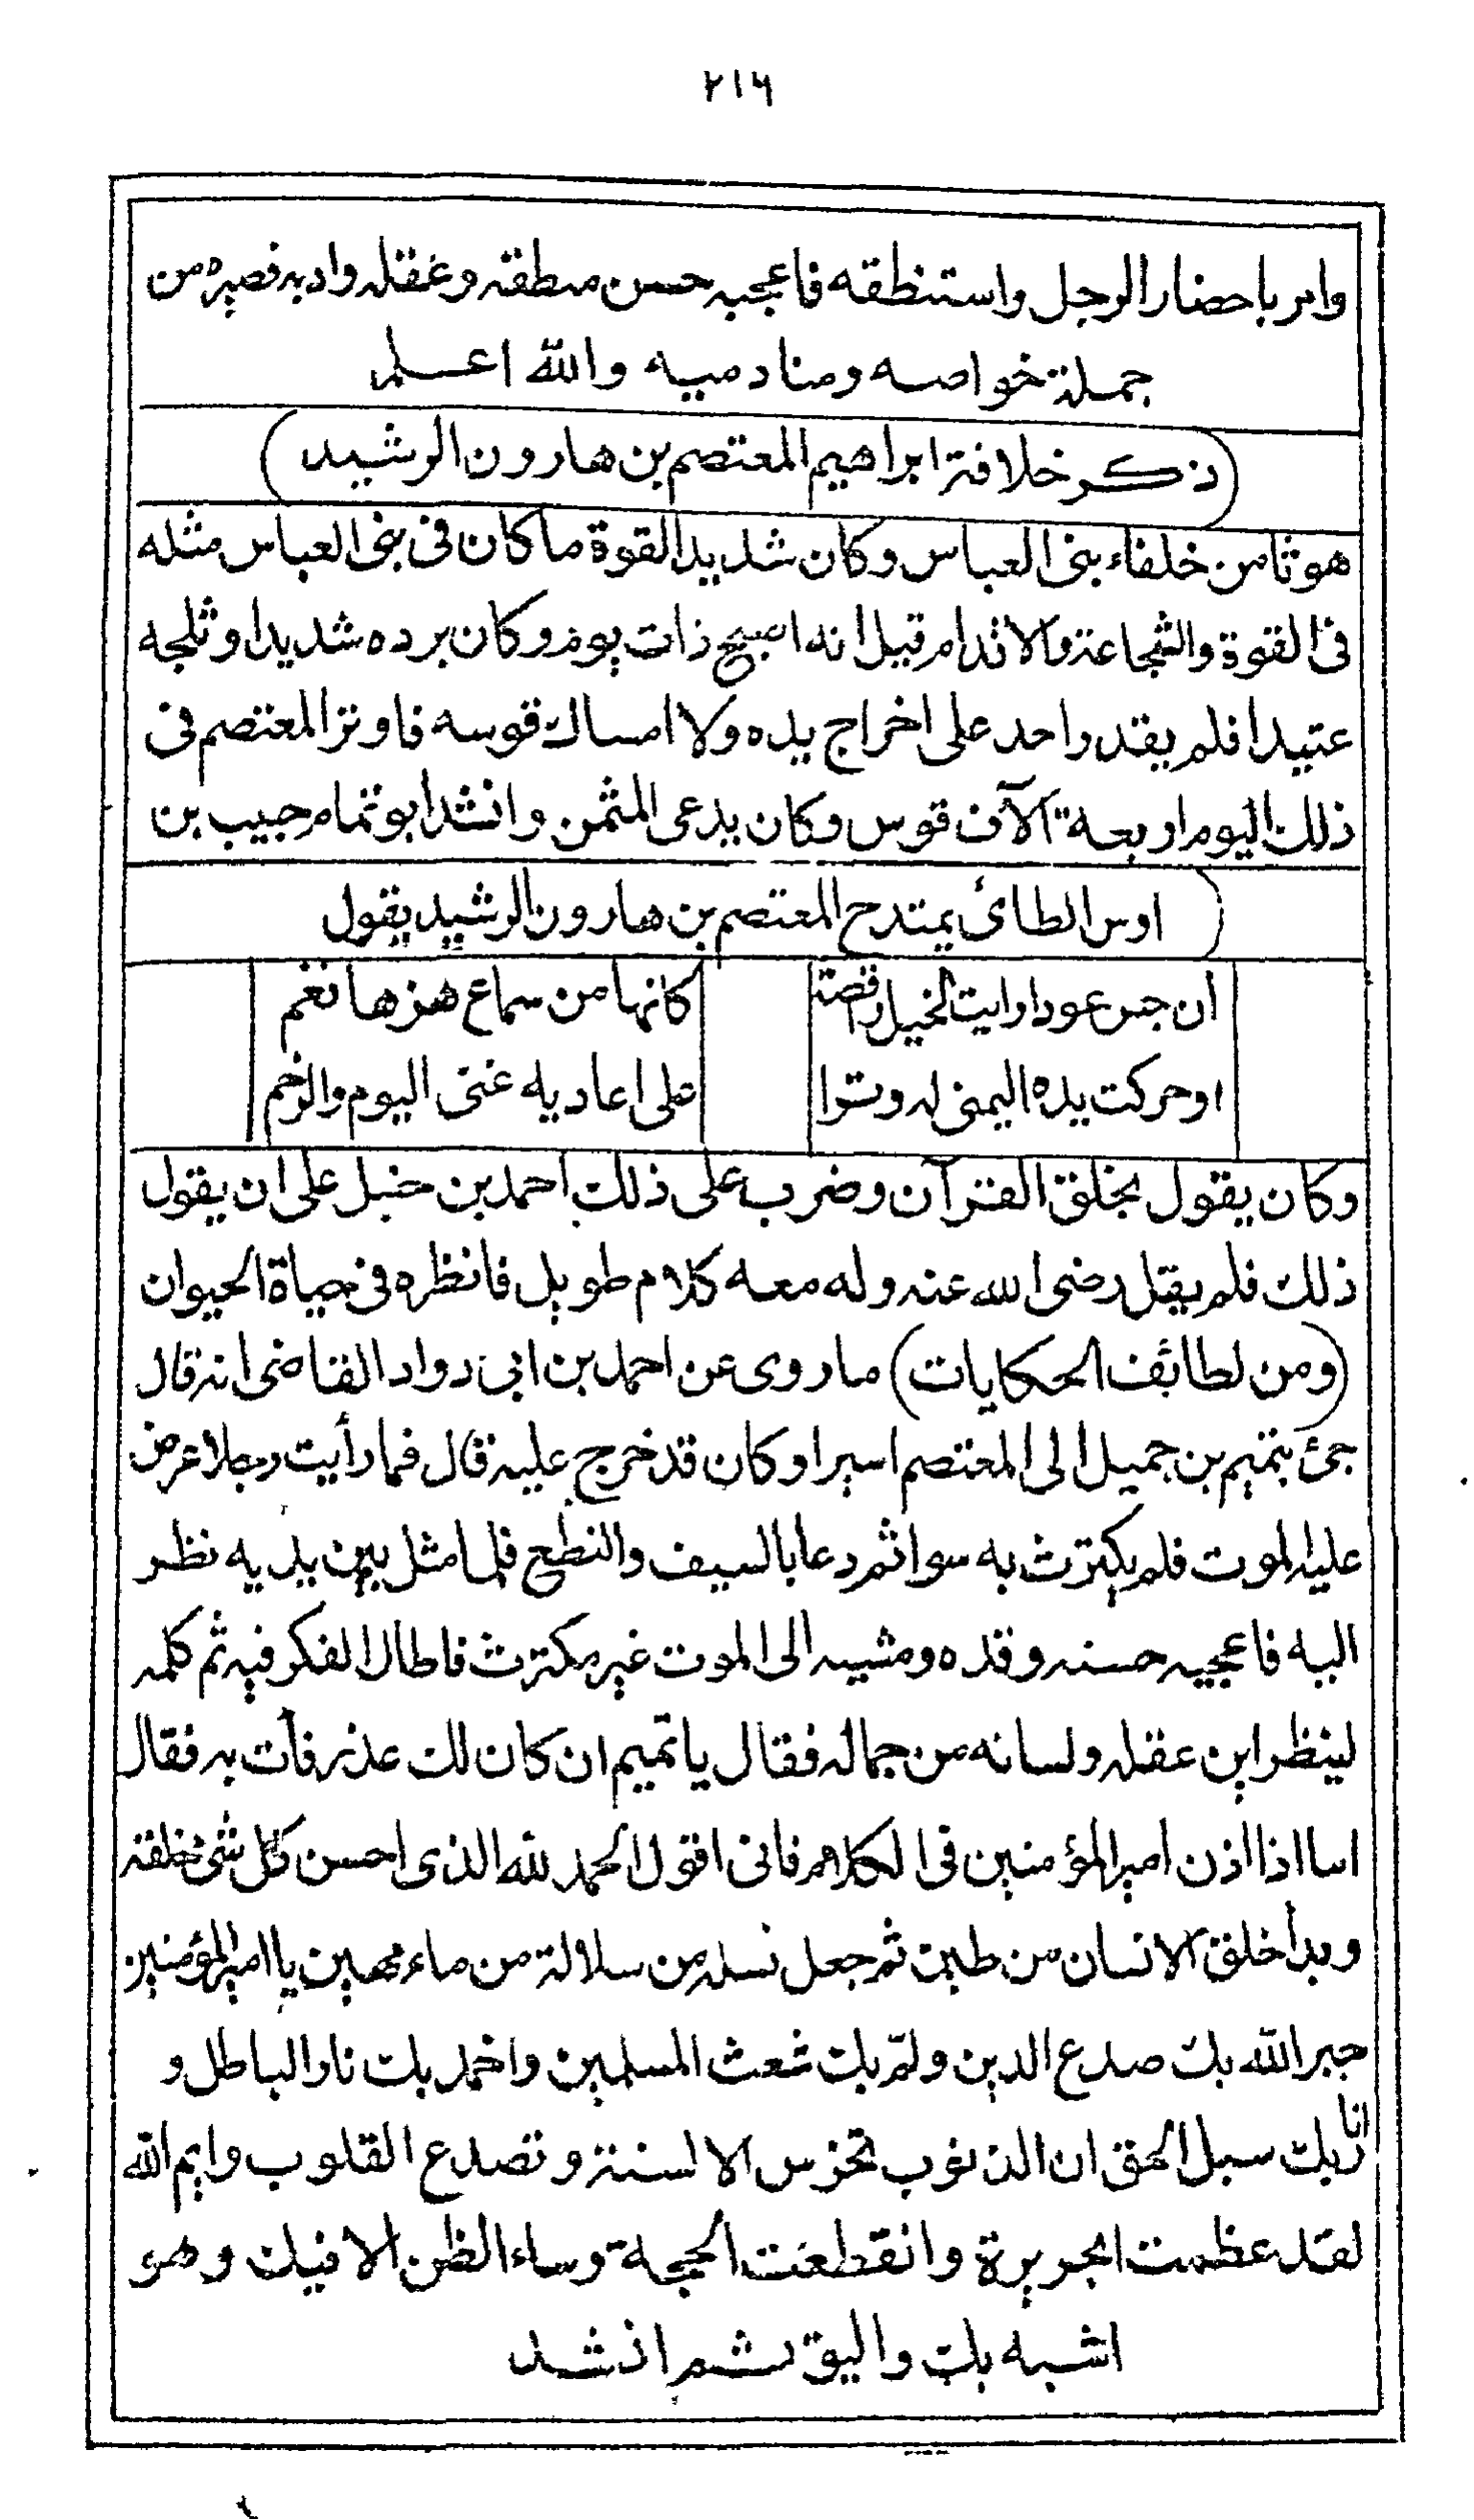 ٢١٦
وامر باحضار الرجل واستنظقه فاعجبه حسن منطقه وعقله وادبه فصيره من
جملة خواصه ومنادميه والله اعلم
(ذكر خلافة ابراهيم المعتصم بن هارون الرشيد)
هو ثامن خلفاء بنى العباس وكان شديد القوة ما كان فى بنى العباس مثله
فى القوة والشجاعة والاقدام قيل انه اصبح ذات يوم وكان برده شديدا وثلجه
عتيدا فلم يقدر احد على اخراج يده ولا امساك قوسه فاوتر المعتصم فى
ذلك اليوم اربعة آلاف قوس وكان يدعى المثمن وانشد ابو تمام حبيب بن
(اوس الطائى يمتدح المعتصم بن هارون الرشيد يقول
ان جس عودا رايت الخيل راقصة كانها من سماع هزها نغم
او حركت يده اليمنى له وترا على اعاديه غنى اليوم والرخم
وكان يقول بخلق القرآن وضرب على ذلك احمد بن حنبل على ان يقول
ذلك فلم يقل رضى الله عنه وله معه كلام طويل فانظره فى حياة الحيوان
(ومن لطائف الحكايات) ما روى عن احمد بن ابى دواد القاضى انه قال
جئ بتميم بن جميل الى المعتصم اسيرا وكان قد خرج عليه قال فما رأيت رجلا عرض
عليه الموت فلم يكترث به سوا ثم دعا بالسيف والنطع فلما مثل بين يديه نظر
اليه فاعجبه حسنه وقده ومشيه الى الموت غير مكترث فاطال الفكر فيه ثم كلمه
لينظر اين عقله ولسانه من جماله فقال يا تميم ان كان لك عذر فأت به فقال
اما اذا اذن امير المؤمنين فى الكلام فانى اقول الحمد لله الذى احسن كل شئ خلقه
وبدأ خلق الانسان من طين ثم جعل نسله من سلالة من ماء مهين يا امير المؤمنين
جبر الله بك صدع الدين ولم بك شعث المسلمين واخمد بك نار الباطل و
انار بك سبل الحق ان الذنوب تخرس الالسنة وتصدع القلوب وايم الله
لقد عظمت الجريرة وانقطعت الحجة وساء الظن الا فيك وهو
اشبه بك واليق ثم انشد